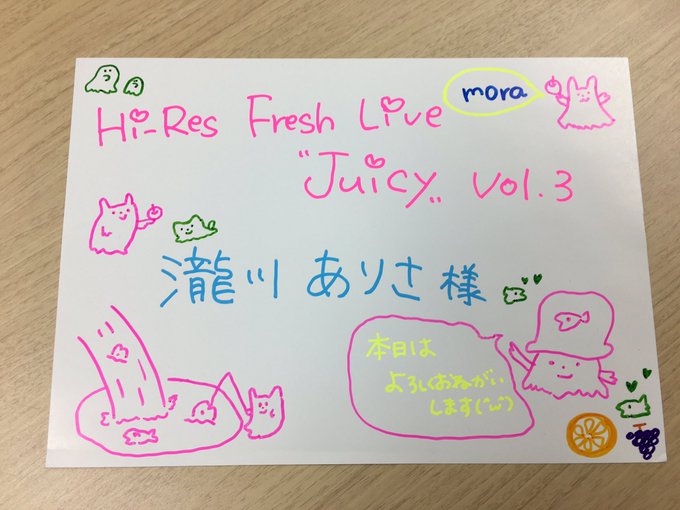 mora
Hi-Res Fresh Live
"Juicy" vol.3
瀧川 ありさ 様
本日は
よろしくおねがい
します(^ω^)